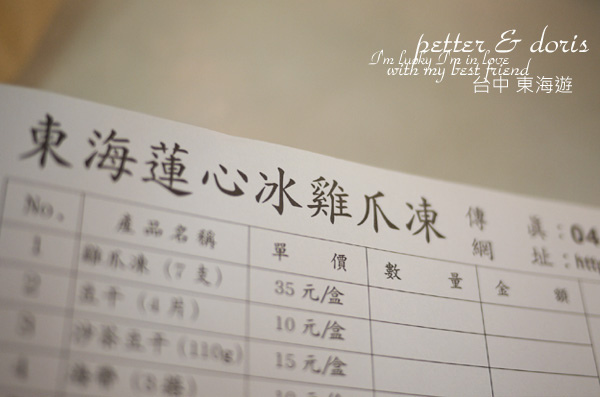 petter & doris
I'm lucky I'm in love
with my best friend
台中 東海遊
東海蓮心冰雞爪凍
傳 真:04
網 址:http
No. 產品名稱 單 價 數 量 金 額
1 雞爪凍(7支) 35 元/盒
2 豆干(4片) 10 元/盒
3 沙茶豆干(110g) 15 元/盒
4 海帶